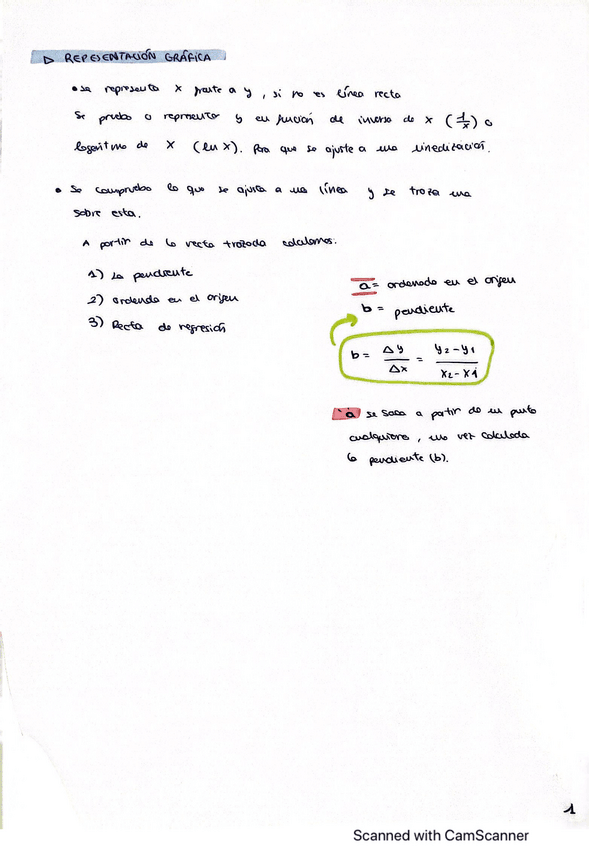 ▷ REPRESENTACIÓN GRÁFICA
• Se representa x frente a y, si no es línea recta
Se prueba a representar y en función de inverso de x (1/x) o
logaritmo de x (ln x). Para que se ajuste a una linealización.
• Se comprueba lo que se ajusta a una línea y se traza una
sobre esta.
A partir de la recta trazada calculamos.
1) La pendiente
2) ordenada en el origen
3) Recta de regresión
a = ordenada en el origen
b = pendiente
b = Δy/Δx = y2-y1/x2-x1
"a" se saca a partir de un punto
cualquiera, una vez calculada
la pendiente (b).
1
Scanned with CamScanner